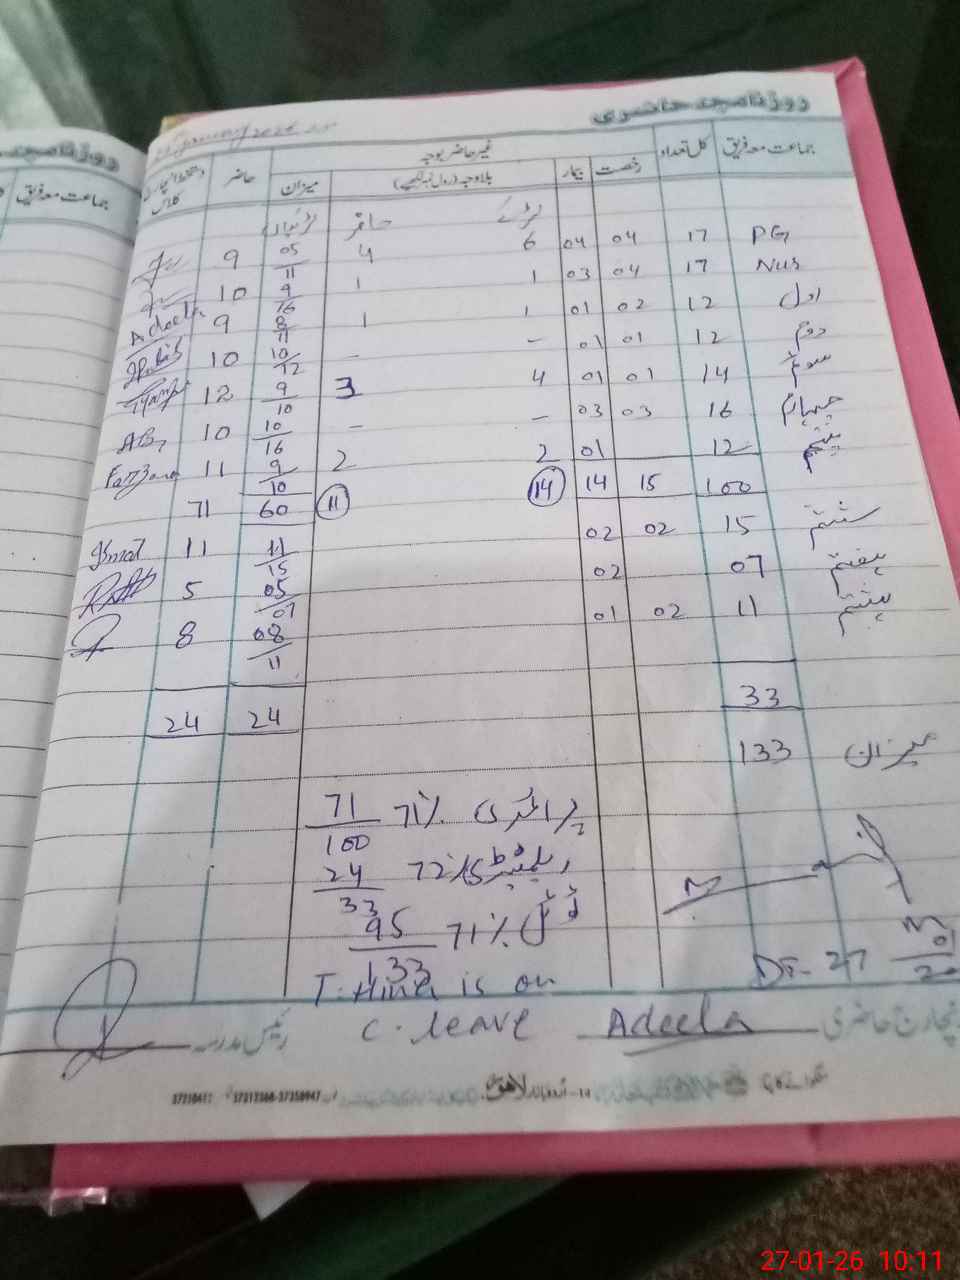 روزنامچہ حاضری
January 2026
جماعت معہ فریق کل تعداد غیر حاضر بوجہ حاضر دستخط انچارج کلاس
رخصت بیمار بلاوجہ (رول نمبر لکھیے) میزان
لڑکے حاضر لڑکیاں
PG 17 04 04 6 4 05/11 9
Nus 17 04 03 1 1 9/16 10
اول 12 02 01 1 1 8/11 9 Adeela
دوم 12 01 01 - - 10/12 10
سوئم 14 01 01 4 3 9/10 12
چہارم 16 03 03 - - 10/16 10
پنجم 12 01 2 2 9/10 11 Farzana
100 15 14 14 11 60 71
ششم 15 02 02 11/15 11
ہفتم 07 02 05/07 5
ہشتم 11 02 01 08/11 8
33 24 24
میزان 133
پرائمری 71% 71/100
72% 24/33
ٹوٹل 71% 95/133
T. Hina is on
Dt- 27
C. leave
انچارج حاضری Adeela رئیس مدرسہ
اردو بازار لاہور
27-01-26 10:11